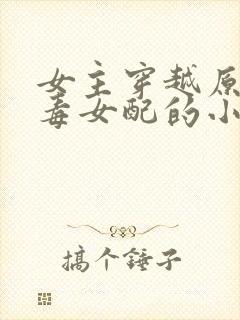 女主穿越原
毒女配的小
搞个锤子